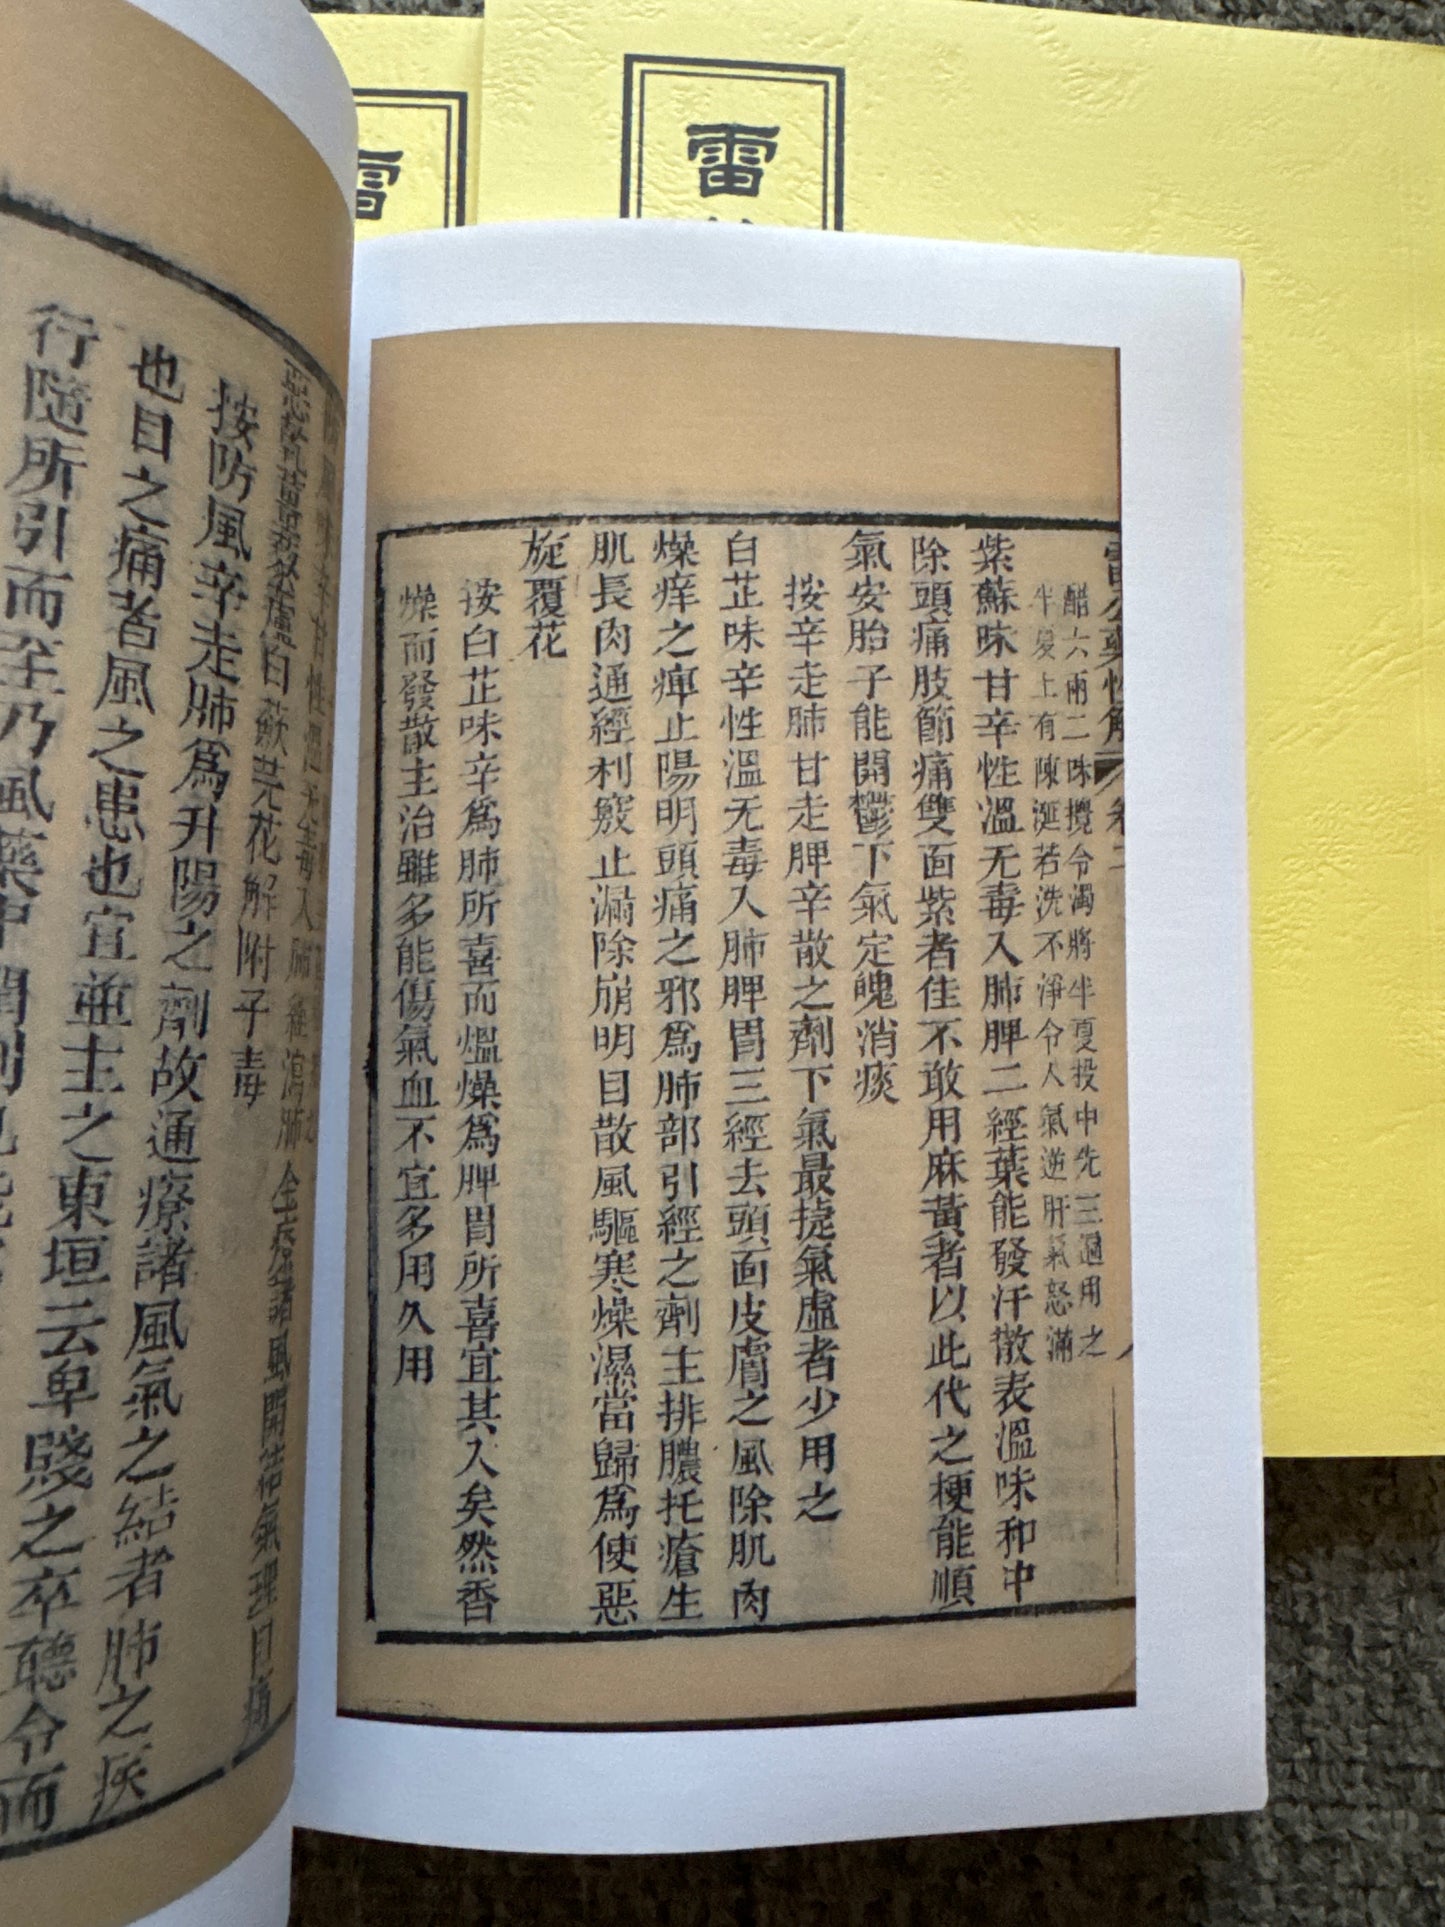 雷
雷
醋六兩二味攪令濁將半夏投中先三過用之
半夏上有陳涎若洗不淨令人氣逆肝氣怒滿
紫蘇味甘辛性溫无毒入肺脾二經葉能發汗散表溫味和中
除頭痛肢節痛雙面紫者佳不敢用麻黃者以此代之梗能順
氣安胎子能開鬱下氣定魄消痰
按辛走肺甘走脾辛散之劑下氣最捷氣虛者少用之
白芷味辛性溫无毒入肺脾胃三經去頭面皮膚之風除肌肉
燥痒之痺止陽明頭痛之邪為肺部引經之劑主排膿托瘡生
肌長肉通經利竅止漏除崩明目散風驅寒燥濕當歸為使惡
旋覆花
按白芷味辛為肺所喜而熅燥為脾胃所喜宜其入矣然香
燥而發散主治雖多能傷氣血不宜多用久用
惡乾薑藜蘆白蘞芫花解附子毒
按防風辛走肺為升陽之劑故通療諸風氣之結者肺之疾
也目之痛者風之患也宜並主之東垣云卑賤之卒聽令而
行隨所引而至乃風藥中潤劑